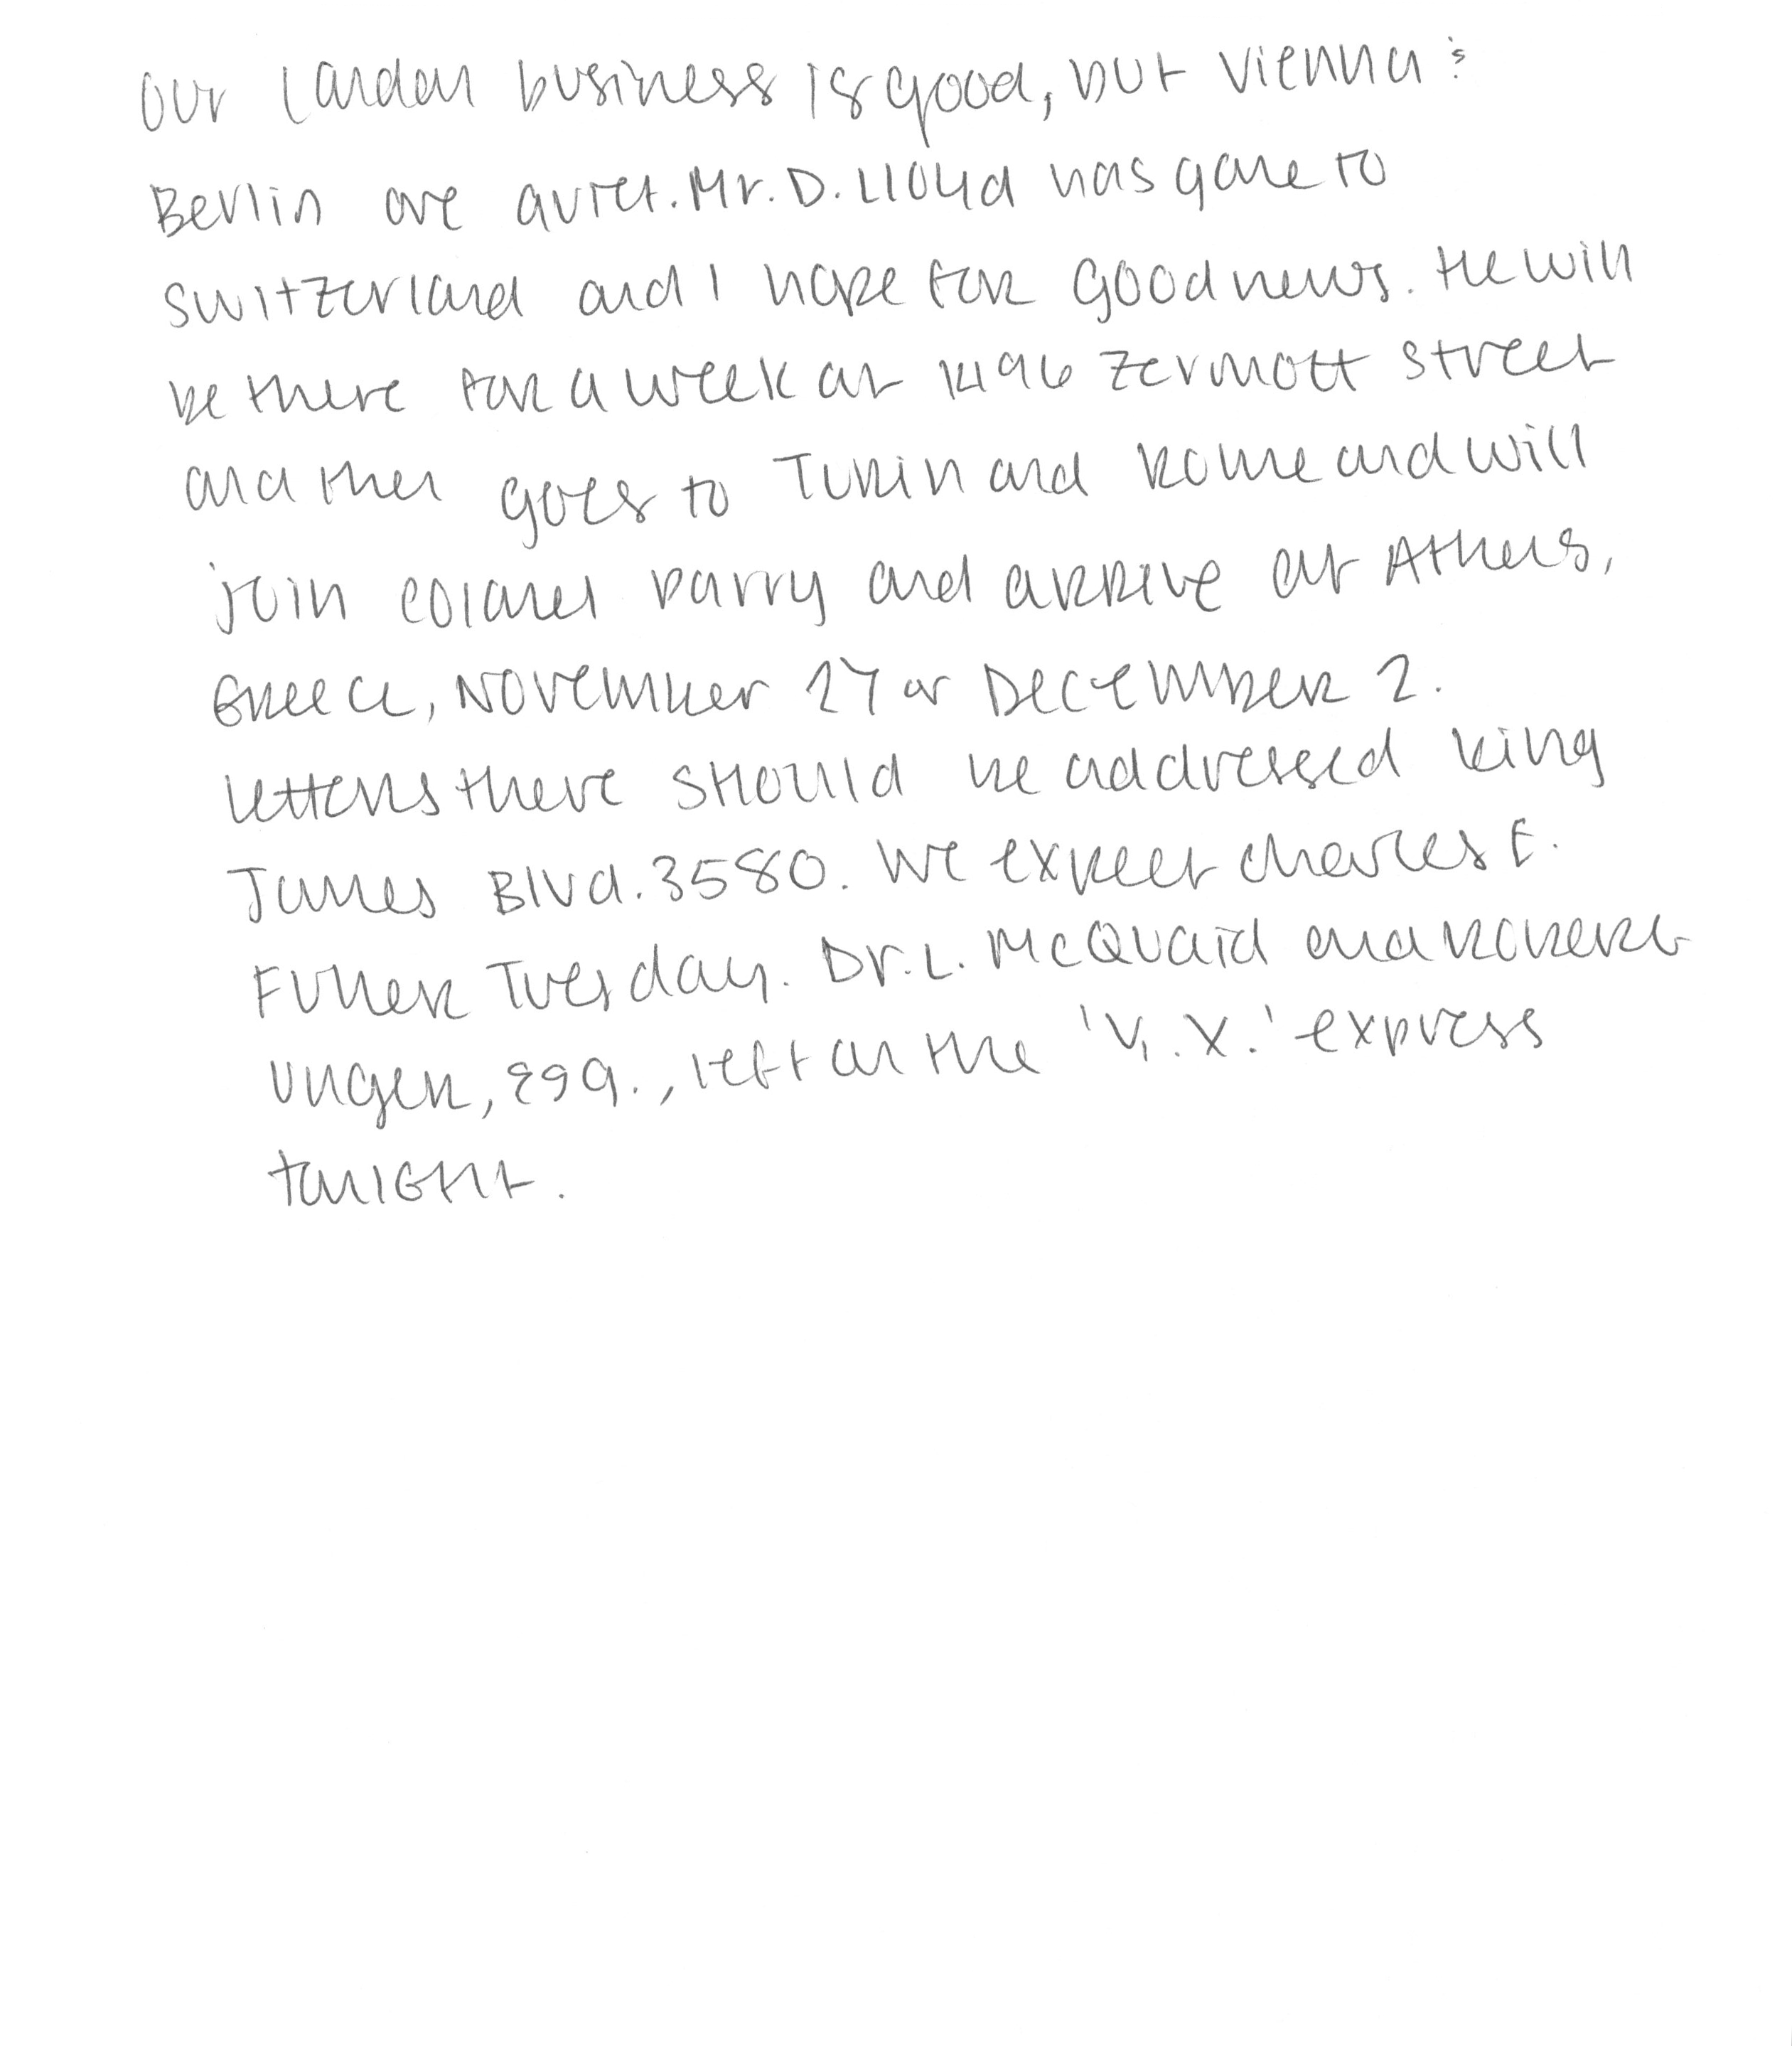 Our London business is good, but Vienna &
Berlin are quiet. Mr. D. Lloyd has gone to
Switzerland and I hope for good news. He will
be there for a week at 1496 Zermott Street
and then goes to Turin and Rome and will
join Colonel Parry and arrive at Athens,
Greece, November 27 or December 2.
Letters there should be addressed King
James Blvd. 3580. We expect Charles E.
Fuller Tuesday. Dr. L. McQuaid and Robert
Unger, Esq., left on the 'Y. X.' Express
tonight.